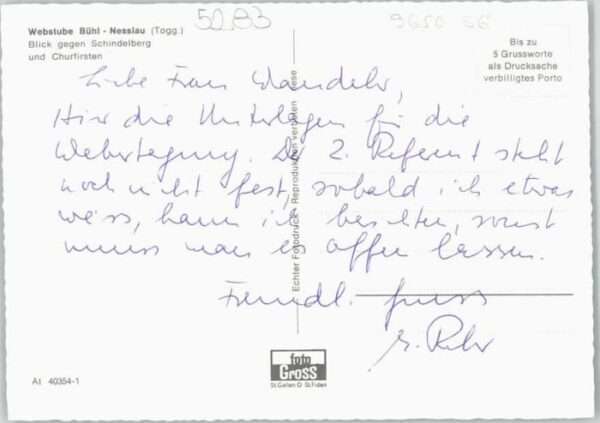 Webstube Bühl - Nesslau (Togg.)
Blick gegen Schindelberg
und Churfirsten
5083
9650 SG
Bis zu
5 Grussworte
als Drucksache
verbilligtes Porto
Liebe Frau
Hier die Unterlagen für die
Webertagung. Der 2. Referent steht
noch nicht fest, sobald ich etwas
weiss, kann ich berichten, sonst
muss man es offen lassen.
Freundl. Gruss
Echter Fotodruck - Reproduktion verboten
foto
GROSS
St.Gallen O St.Fiden
AI 40354-1